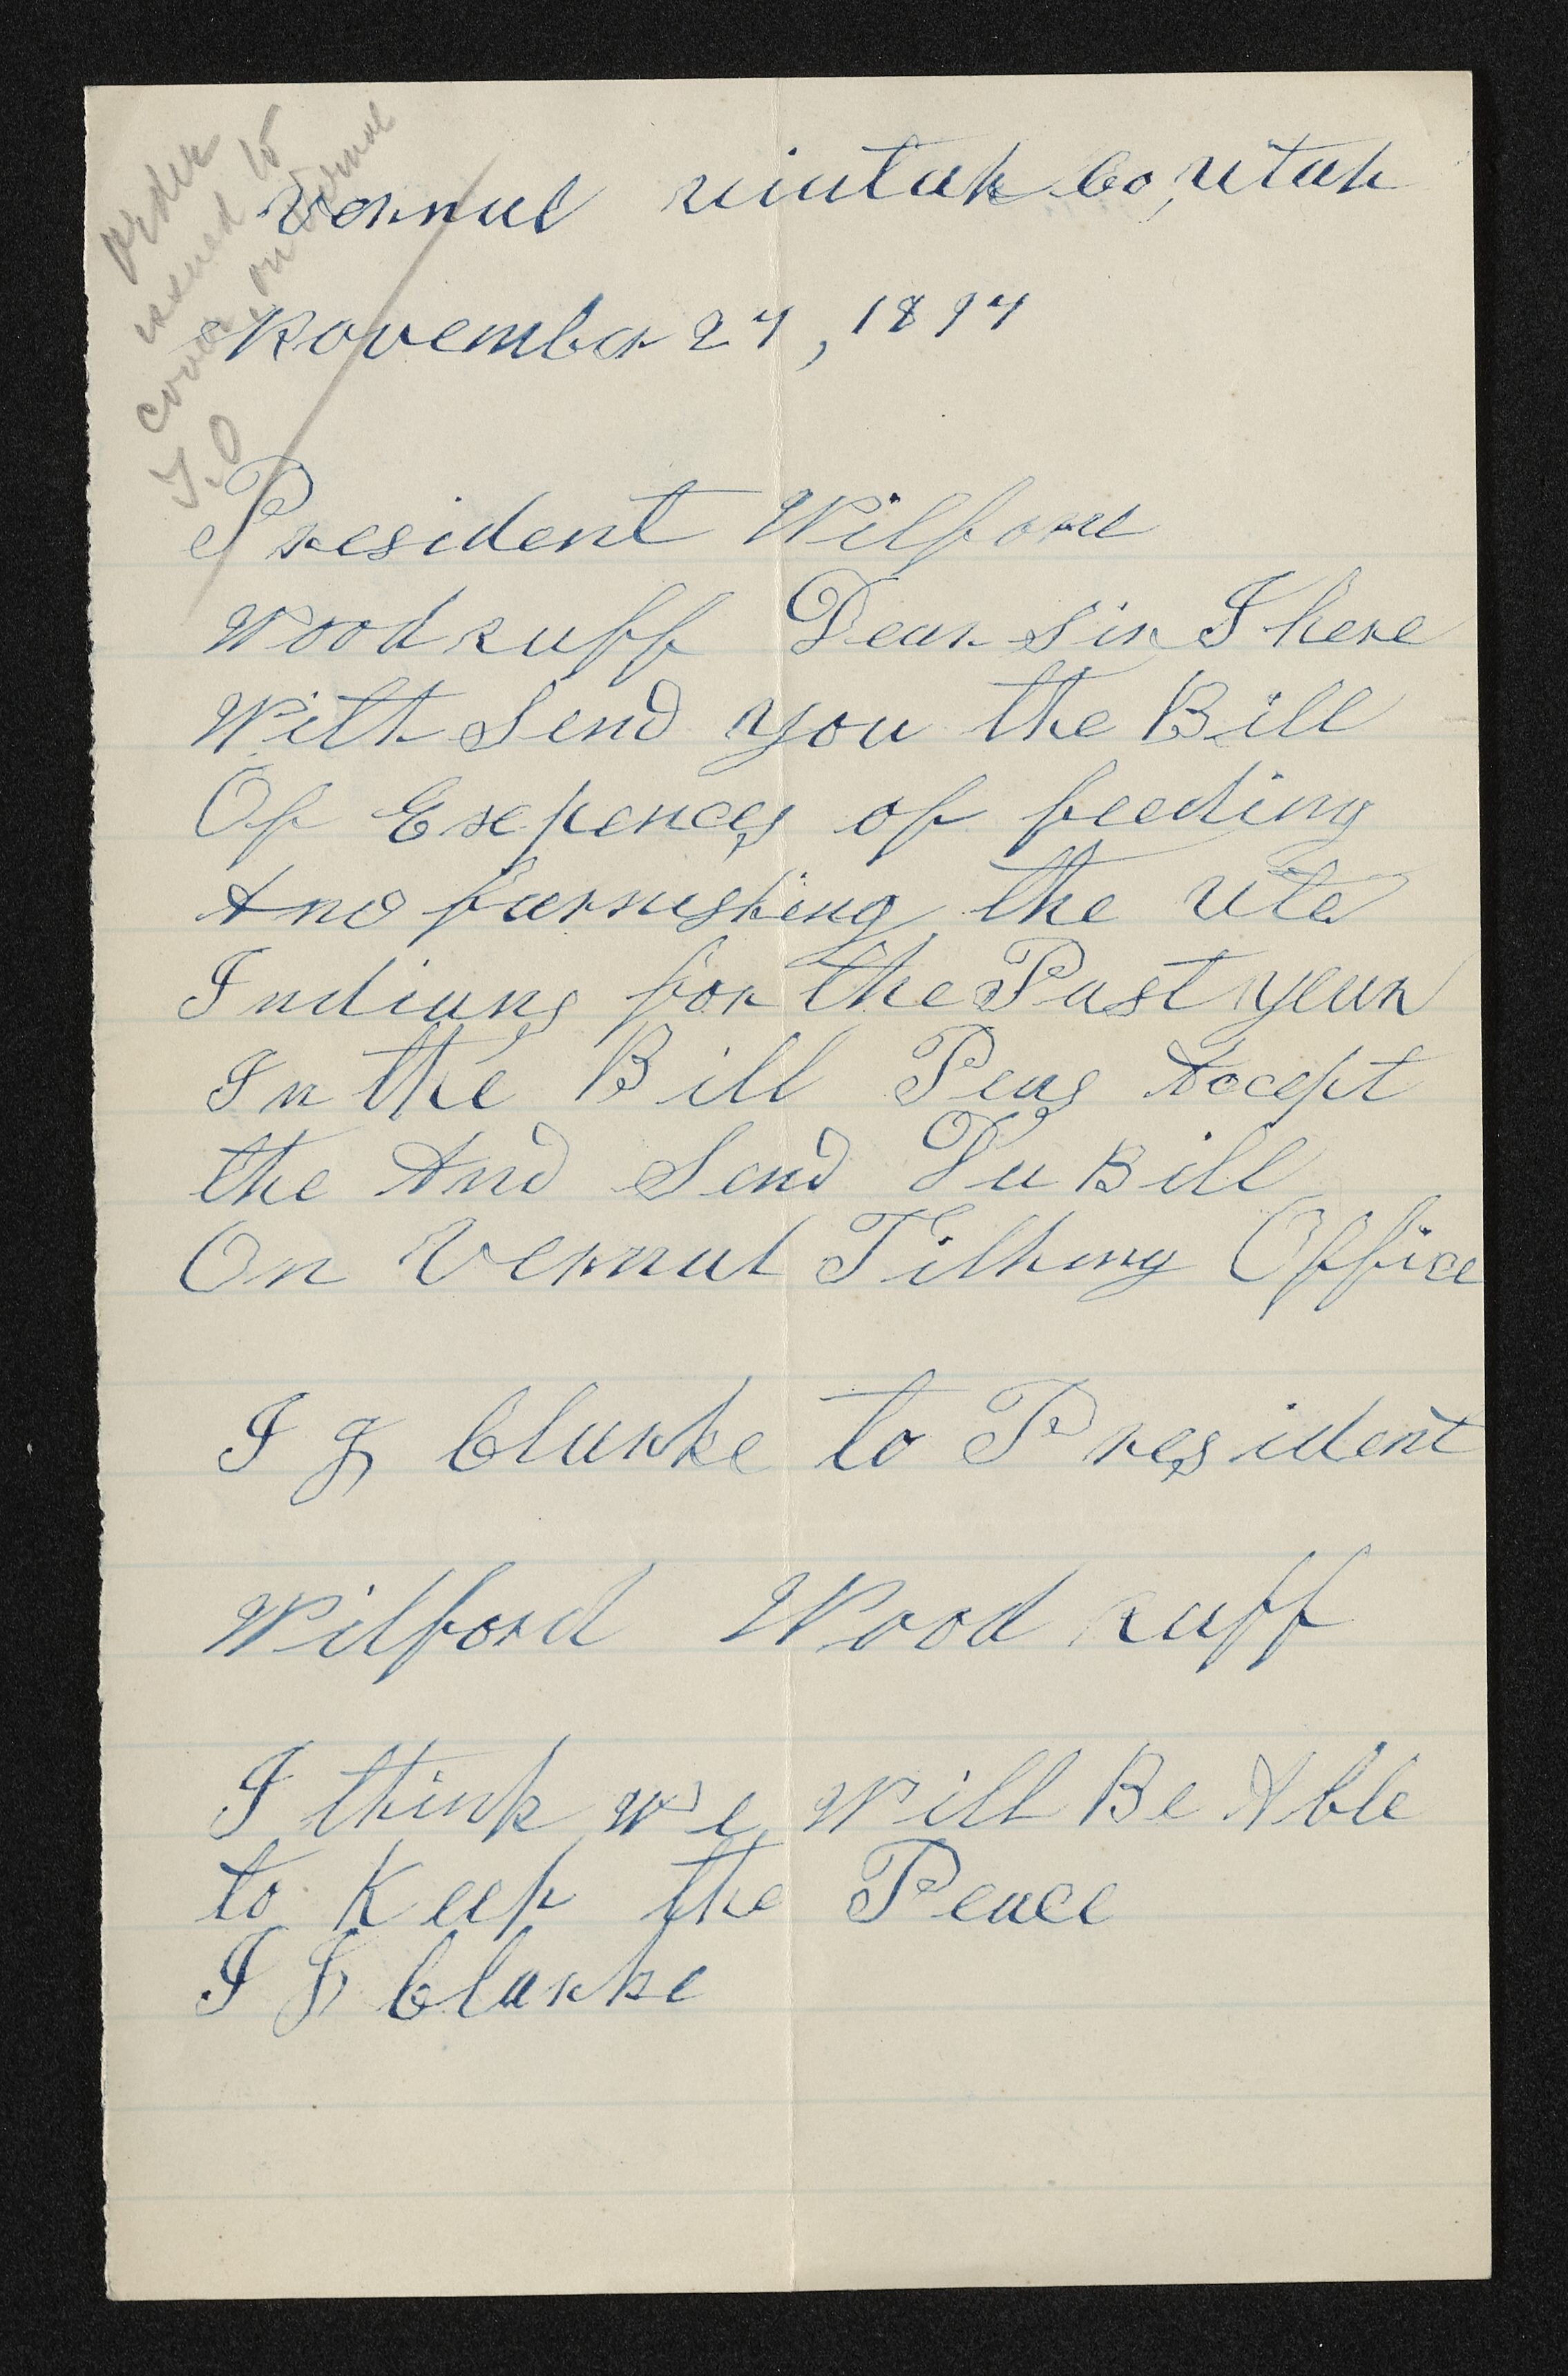 Order
issued to
cover, on Vernal
T.O
Vernal Uintah Co, Utah
November 24, 1894
President Wilford
Woodruff Dear Sir I here
With Send you the Bill
Of Exepences of feeding
And furnishing the Ute
Indians for the Past year
In the Bill Peas Accept
the And Send Du Bill
On Vernal Tithing Office
I J Clarke to President
Wilford Woodruff
I think we Will Be Able
to Keep the Peace
I J Clarke